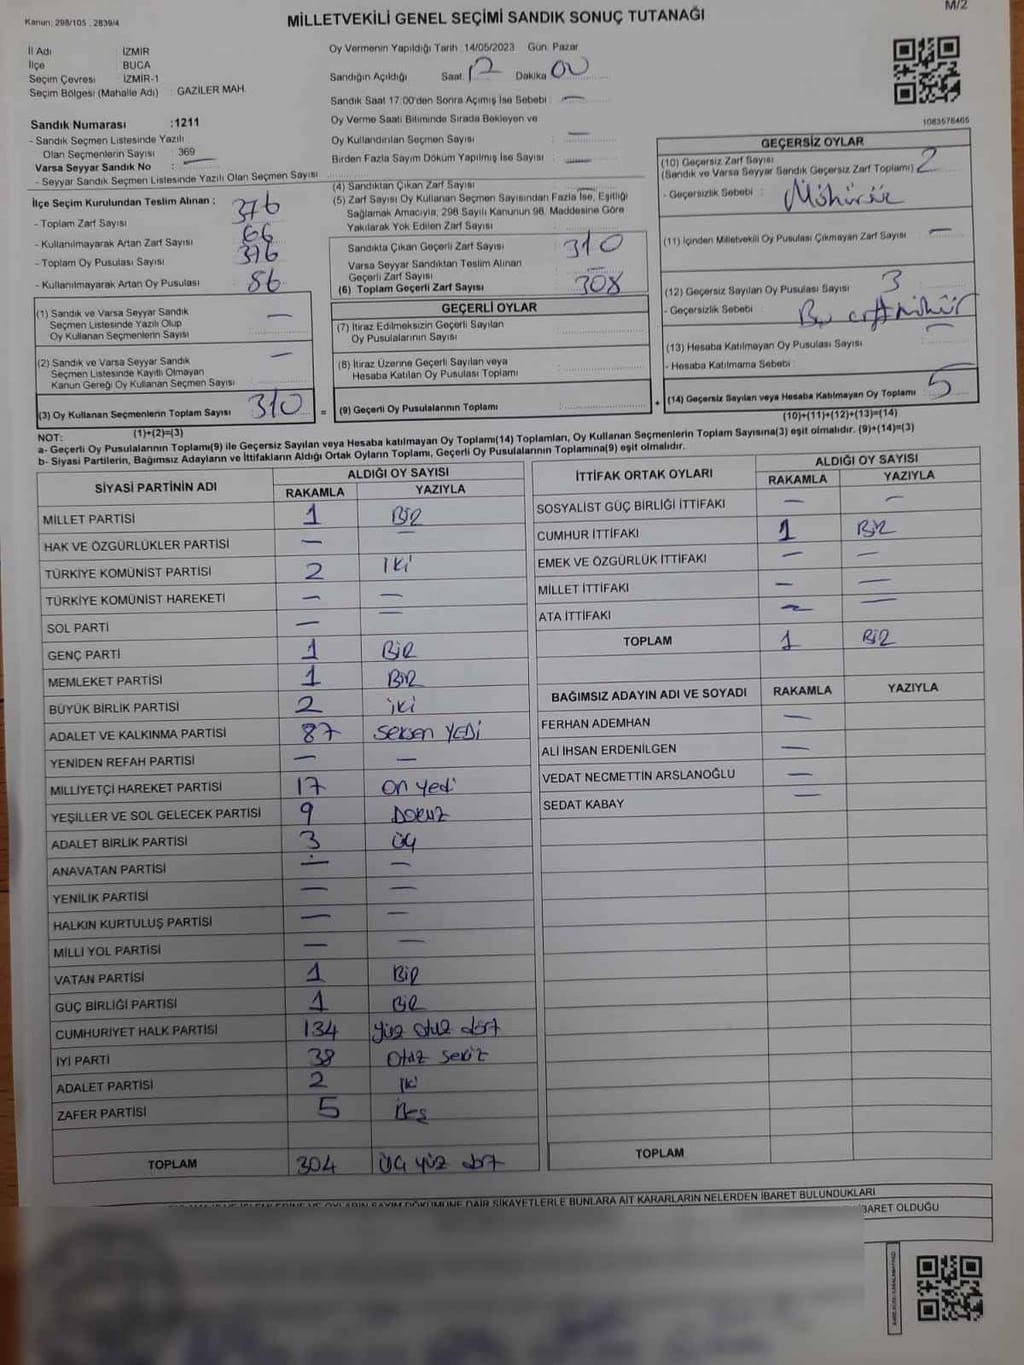 Kanun: 298/105 : 2839/4
M/2
MİLLETVEKİLİ GENEL SEÇİMİ SANDIK SONUÇ TUTANAĞI
İl Adı : İZMİR
İlçe : BUCA
Seçim Çevresi : İZMİR-1
Seçim Bölgesi (Mahalle Adı) : GAZİLER MAH.
Sandık Numarası :1211
- Sandık Seçmen Listesinde Yazılı
Olan Seçmenlerin Sayısı : 369
Varsa Seyyar Sandık No : —
- Seyyar Sandık Seçmen Listesinde Yazılı Olan Seçmen Sayısı
Oy Vermenin Yapıldığı Tarih : 14/05/2023 Gün: Pazar
Sandığın Açıldığı Saat: 12 Dakika 00
Sandık Saat 17:00'den Sonra Açımış İse Sebebi : —
Oy Verme Saati Bitiminde Sırada Bekleyen ve
Oy Kullandırılan Seçmen Sayısı : —
Birden Fazla Sayım Döküm Yapılmış İse Sayısı : —
1083576465
İlçe Seçim Kurulundan Teslim Alınan :
- Toplam Zarf Sayısı 376
- Kullanılmayarak Artan Zarf Sayısı 66
- Toplam Oy Pusulası Sayısı 376
- Kullanılmayarak Artan Oy Pusulası 86
(1) Sandık ve Varsa Seyyar Sandık
Seçmen Listesinde Yazılı Olup
Oy Kullanan Seçmenlerin Sayısı —
(2) Sandık ve Varsa Seyyar Sandık
Seçmen Listesinde Kayıtlı Olmayan
Kanun Gereği Oy Kullanan Seçmen Sayısı —
(3) Oy Kullanan Seçmenlerin Toplam Sayısı 310 =
(1)+(2)=(3)
(4) Sandıktan Çıkan Zarf Sayısı
(5) Zarf Sayısı Oy Kullanan Seçmen Sayısından Fazla İse, Eşitliği
Sağlamak Amacıyla, 298 Sayılı Kanunun 98. Maddesine Göre
Yakılarak Yok Edilen Zarf Sayısı
Sandıkta Çıkan Geçerli Zarf Sayısı 310
Varsa Seyyar Sandıktan Teslim Alınan
Geçerli Zarf Sayısı —
(6) Toplam Geçerli Zarf Sayısı 308
GEÇERLİ OYLAR
(7) İtiraz Edilmeksizin Geçerli Sayılan
Oy Pusulalarının Sayısı
(8) İtiraz Üzerine Geçerli Sayılan veya
Hesaba Katılan Oy Pusulası Toplamı
(9) Geçerli Oy Pusulalarının Toplamı +
GEÇERSİZ OYLAR
(10) Geçersiz Zarf Sayısı
(Sandık ve Varsa Seyyar Sandık Geçersiz Zarf Toplamı) 2
- Geçersizlik Sebebi : Mühürsüz
(11) İçinden Milletvekili Oy Pusulası Çıkmayan Zarf Sayısı —
(12) Geçersiz Sayılan Oy Pusulası Sayısı 3
- Geçersizlik Sebebi :
(13) Hesaba Katılmayan Oy Pusulası Sayısı —
- Hesaba Katılmama Sebebi :
(14) Geçersiz Sayılan veya Hesaba Katılmayan Oy Toplamı 5
(10)+(11)+(12)+(13)=(14)
NOT:
a- Geçerli Oy Pusulalarının Toplamı(9) ile Geçersiz Sayılan veya Hesaba katılmayan Oy Toplamı(14) Toplamları, Oy Kullanan Seçmenlerin Toplam Sayısına(3) eşit olmalıdır. (9)+(14)=(3)
b- Siyasi Partilerin, Bağımsız Adayların ve İttifakların Aldığı Ortak Oyların Toplamı, Geçerli Oy Pusulalarının Toplamına(9) eşit olmalıdır.
SİYASİ PARTİNİN ADI ALDIĞI OY SAYISI
RAKAMLA YAZIYLA
MİLLET PARTİSİ 1 BİR
HAK VE ÖZGÜRLÜKLER PARTİSİ —
TÜRKİYE KOMÜNİST PARTİSİ 2 İKİ
TÜRKİYE KOMÜNİST HAREKETİ — —
SOL PARTİ — —
GENÇ PARTİ 1 BİR
MEMLEKET PARTİSİ 1 BİR
BÜYÜK BİRLİK PARTİSİ 2 İKİ
ADALET VE KALKINMA PARTİSİ 87 SEKSEN YEDİ
YENİDEN REFAH PARTİSİ — —
MİLLİYETÇİ HAREKET PARTİSİ 17 ON YEDİ
YEŞİLLER VE SOL GELECEK PARTİSİ 9 DOKUZ
ADALET BİRLİK PARTİSİ 3 ÜÇ
ANAVATAN PARTİSİ — —
YENİLİK PARTİSİ — —
HALKIN KURTULUŞ PARTİSİ — —
MİLLİ YOL PARTİSİ — —
VATAN PARTİSİ 1 BİR
GÜÇ BİRLİĞİ PARTİSİ 1 BİR
CUMHURİYET HALK PARTİSİ 134 yüz otuz dört
İYİ PARTİ 38 Otuz Sekiz
ADALET PARTİSİ 2 İki
ZAFER PARTİSİ 5 Beş
TOPLAM 304 Üç yüz dört
İTTİFAK ORTAK OYLARI ALDIĞI OY SAYISI
RAKAMLA YAZIYLA
SOSYALİST GÜÇ BİRLİĞİ İTTİFAKI — —
CUMHUR İTTİFAKI 1 BİR
EMEK VE ÖZGÜRLÜK İTTİFAKI — —
MİLLET İTTİFAKI — —
ATA İTTİFAKI — —
TOPLAM 1 BİR
BAĞIMSIZ ADAYIN ADI VE SOYADI RAKAMLA YAZIYLA
FERHAN ADEMHAN —
ALİ İHSAN ERDENİLGEN —
VEDAT NECMETTİN ARSLANOĞLU —
SEDAT KABAY —
TOPLAM
DAİR ŞİKAYETLERLE BUNLARA AİT KARARLARIN NELERDEN İBARET BULUNDUKLARI
İBARET OLDUĞU